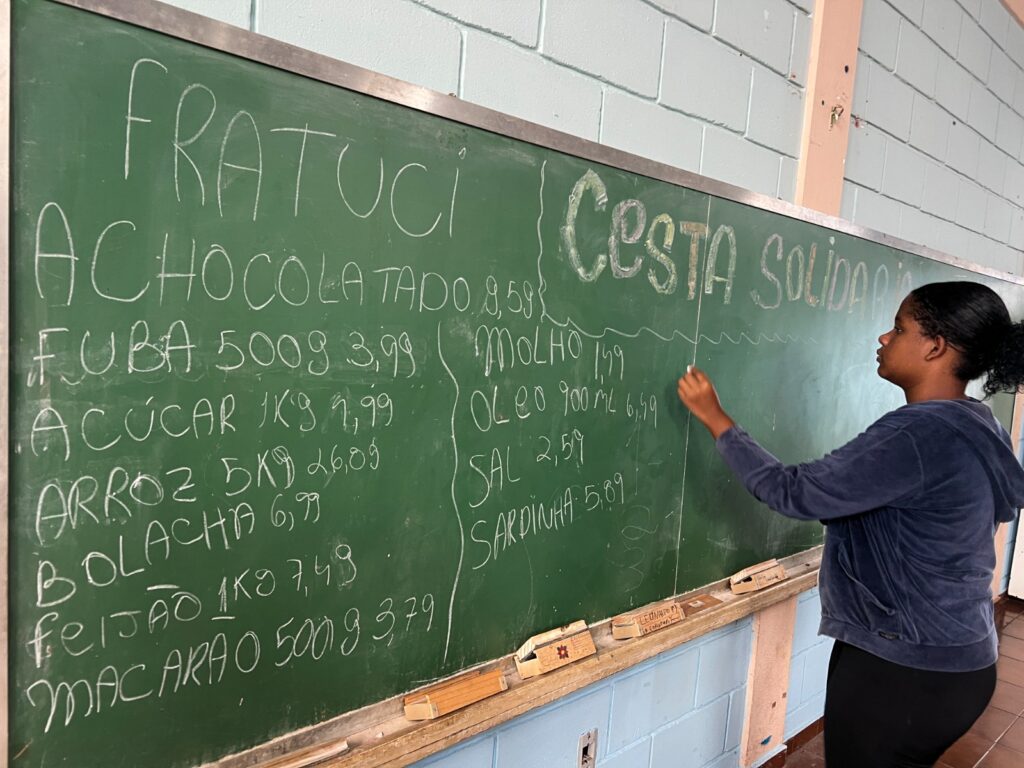 FRATUCi
ACHOCOLATADO 9,59
FUBA 500g 3,99
AÇÚCAR 1Kg 4,99
ARROZ 5Kg 26,09
BOLACHA 6,99
feiJÃO 1KG 7,49
MACARÃO 500g 3,79
CesTA SOLIDARi
MOLHO 1,49
OLeO 900ML 6,49
SAL 2,59
SARDiNHA 5,89